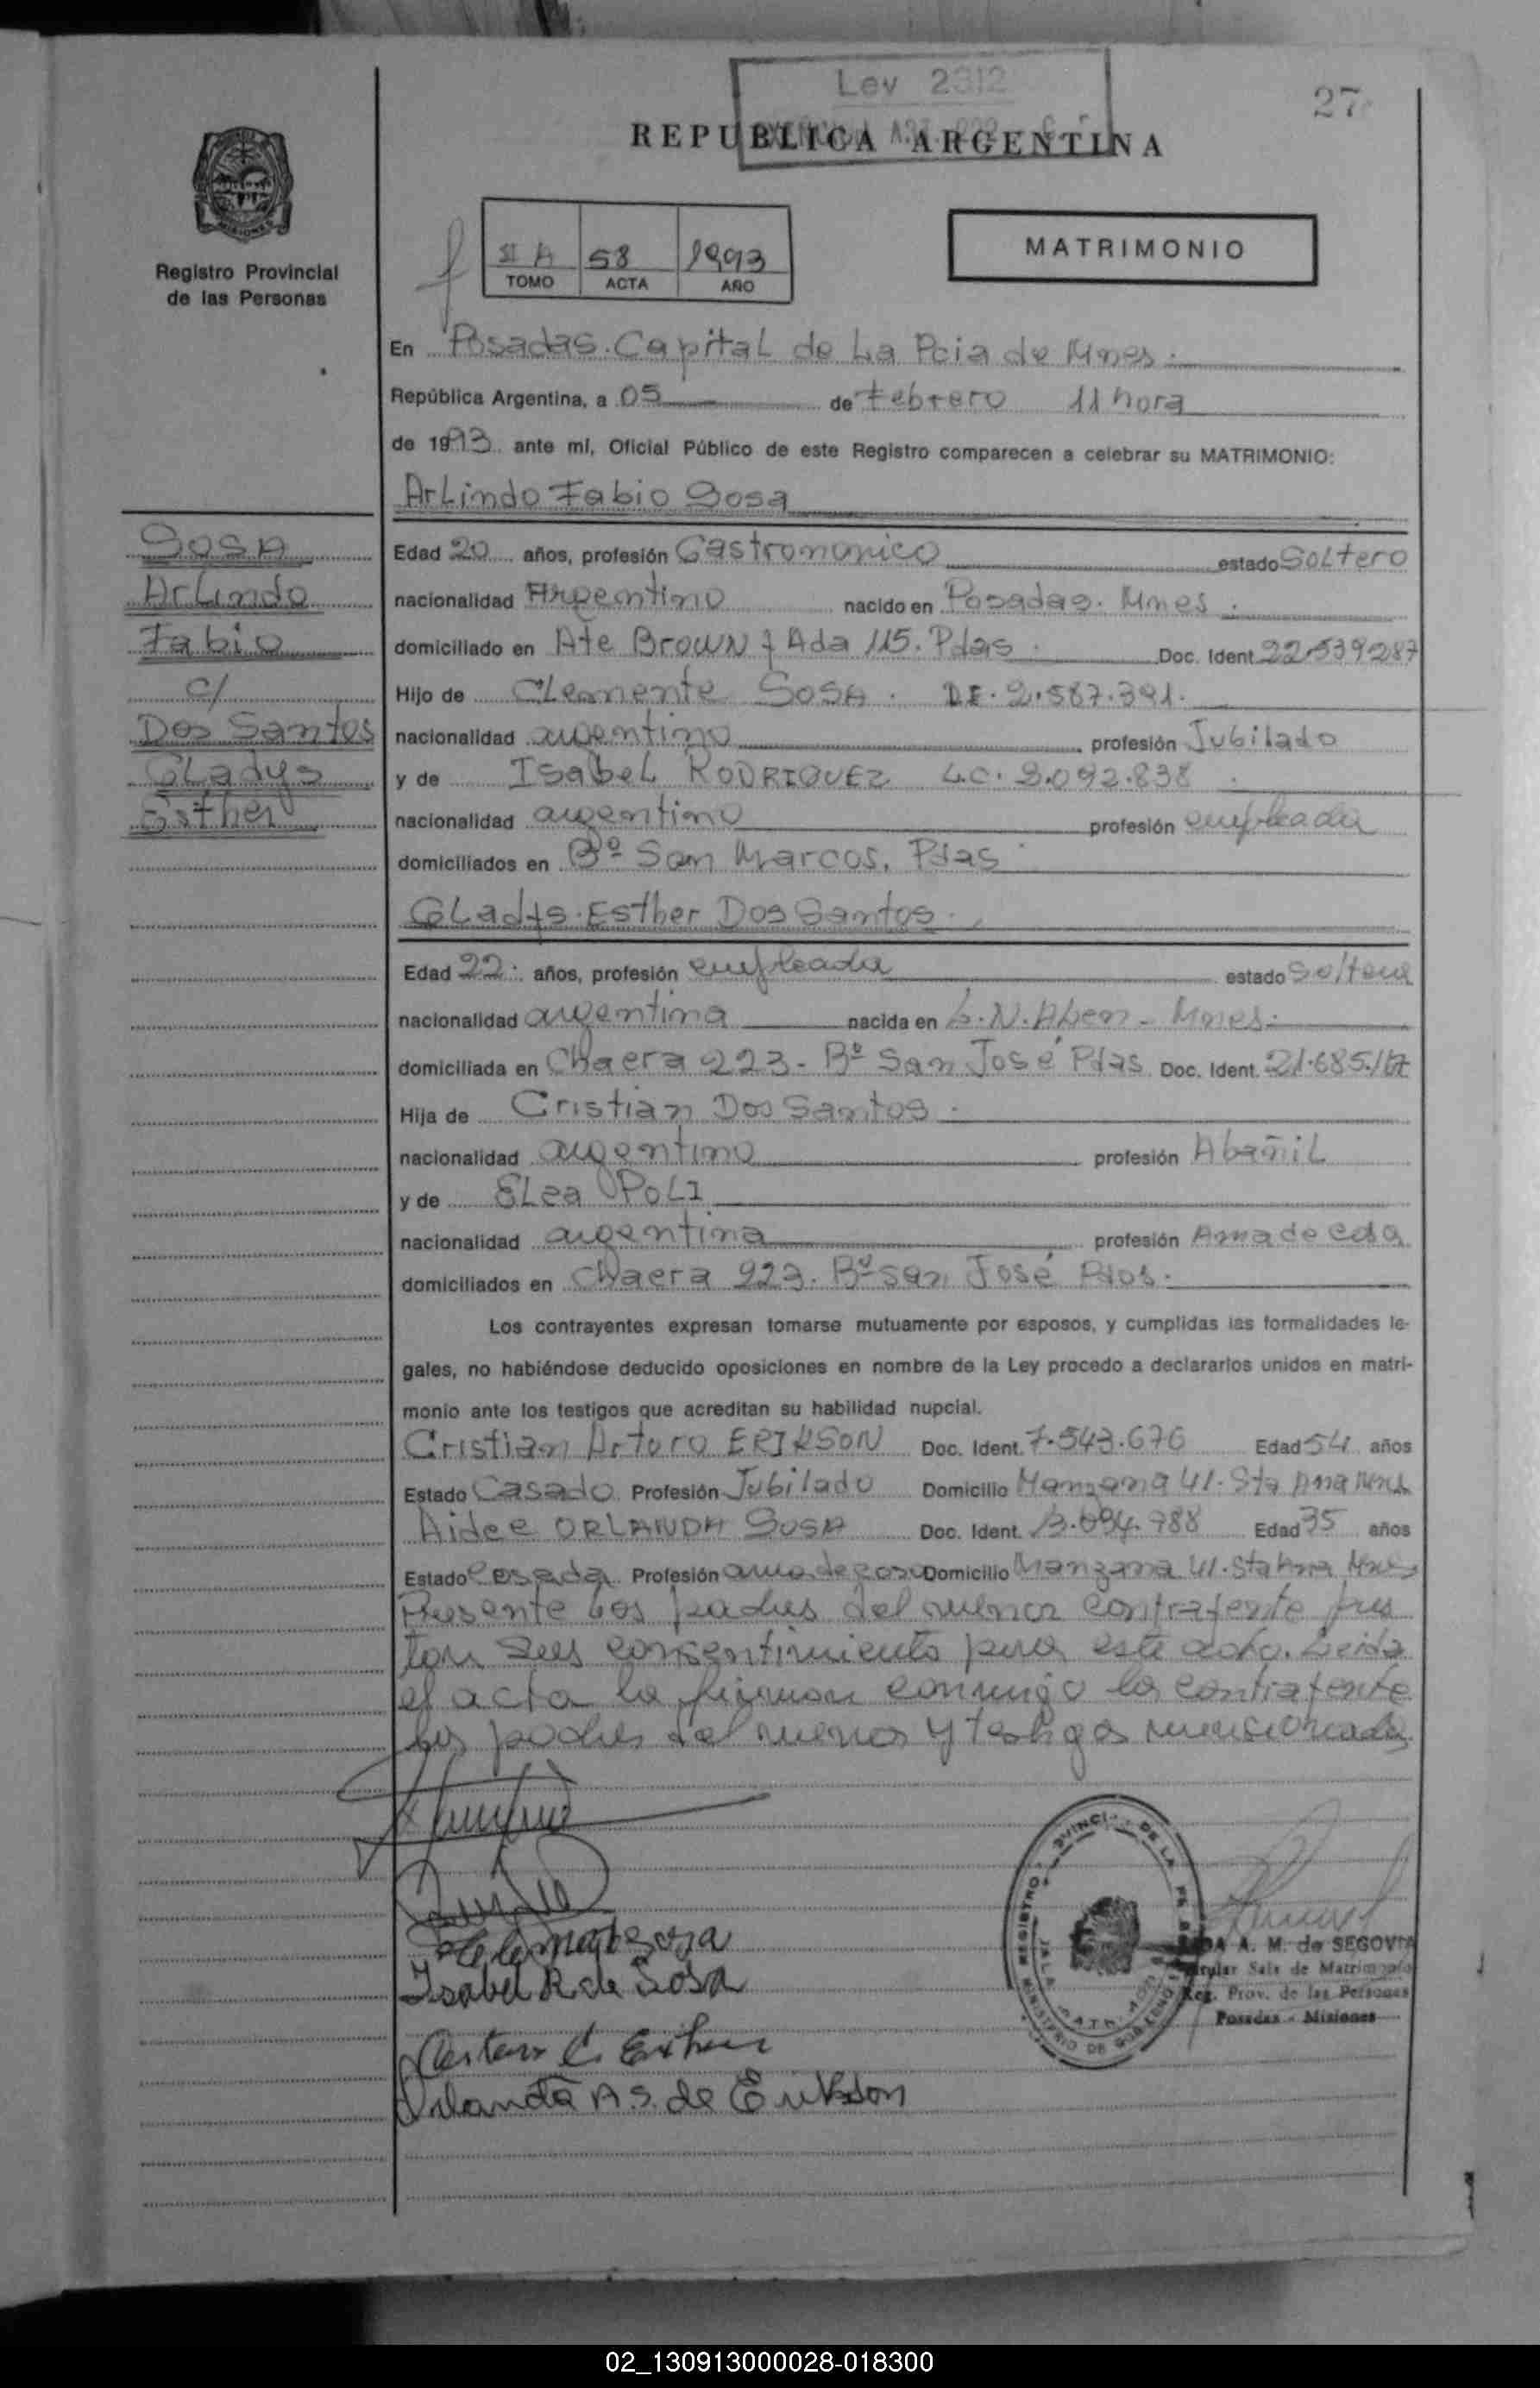 Ley 2312
27
REPUBLICA ARGENTINA
Registro Provincial
de las Personas
II A 58 1993
TOMO ACTA AÑO
MATRIMONIO
En Posadas. Capital de La Pcia de Mnes.
República Argentina, a 05 de Febrero 11 hora
de 1993 ante mí, Oficial Público de este Registro comparecen a celebrar su MATRIMONIO:
ArLindo Fabio Sosa
SosA
ArLindo
Fabio
c/
Dos Santos
GLadys
Esther
Edad 20 años, profesión Gastronomico estado SoLtero
nacionalidad Argentino nacido en Posadas. Mnes.
domiciliado en Ate Brown y Ada 115. Pdas. Doc. Ident 22.539287
Hijo de CLemente SOSA. DI. 2.587.391.
nacionalidad argentino profesión Jubilado
y de ISabeL RODRIGUEZ L.C. 3.092.838.
nacionalidad argentino profesión empleada
domiciliados en Bº San Marcos. Pdas
GLadys Esther Dos Santos.
Edad 22 años, profesión empleada estado soltera
nacionalidad argentina nacida en L.N. ALem - Mnes.
domiciliada en Chacra 223 - Bº San José Pdas Doc. Ident. 21.685.
Hija de Cristian Dos Santos.
nacionalidad argentino profesión AbañiL
y de ELea POLI
nacionalidad argentina profesión Ama de casa
domiciliados en Chacra 223. Bº San José Pdas.
Los contrayentes expresan tomarse mutuamente por esposos, y cumplidas las formalidades le-
gales, no habiéndose deducido oposiciones en nombre de la Ley procedo a declararlos unidos en matri-
monio ante los testigos que acreditan su habilidad nupcial.
Cristian Arturo ERIKSON Doc. Ident. 7.543.676 Edad 54 años
Estado Casado Profesión Jubilado Domicilio Manzana 41. Sta Ana Mnes
Aidee ORLANDA SOSA Doc. Ident. 13.094.788 Edad 35 años
Estado casada Profesión ama de casa Domicilio Manzana 41. Sta Ana Mnes
Presente los padres del menor contrayente pres
tan sus consentimiento para este acto. Leida
el acta la firman conmigo los contrayente
los padres del menor y testigos mencionados
Clemente Sosa
Isabel R de Sosa
Orlanda A.S. de Erikson
REGISTRO PROVINCIAL DE LAS PERSONAS
MINISTERIO DE GOBIERNO
A. M. de SEGOVIA
Titular Sala de Matrimonio
Reg. Prov. de las Personas
Posadas - Misiones
02_130913000028-018300